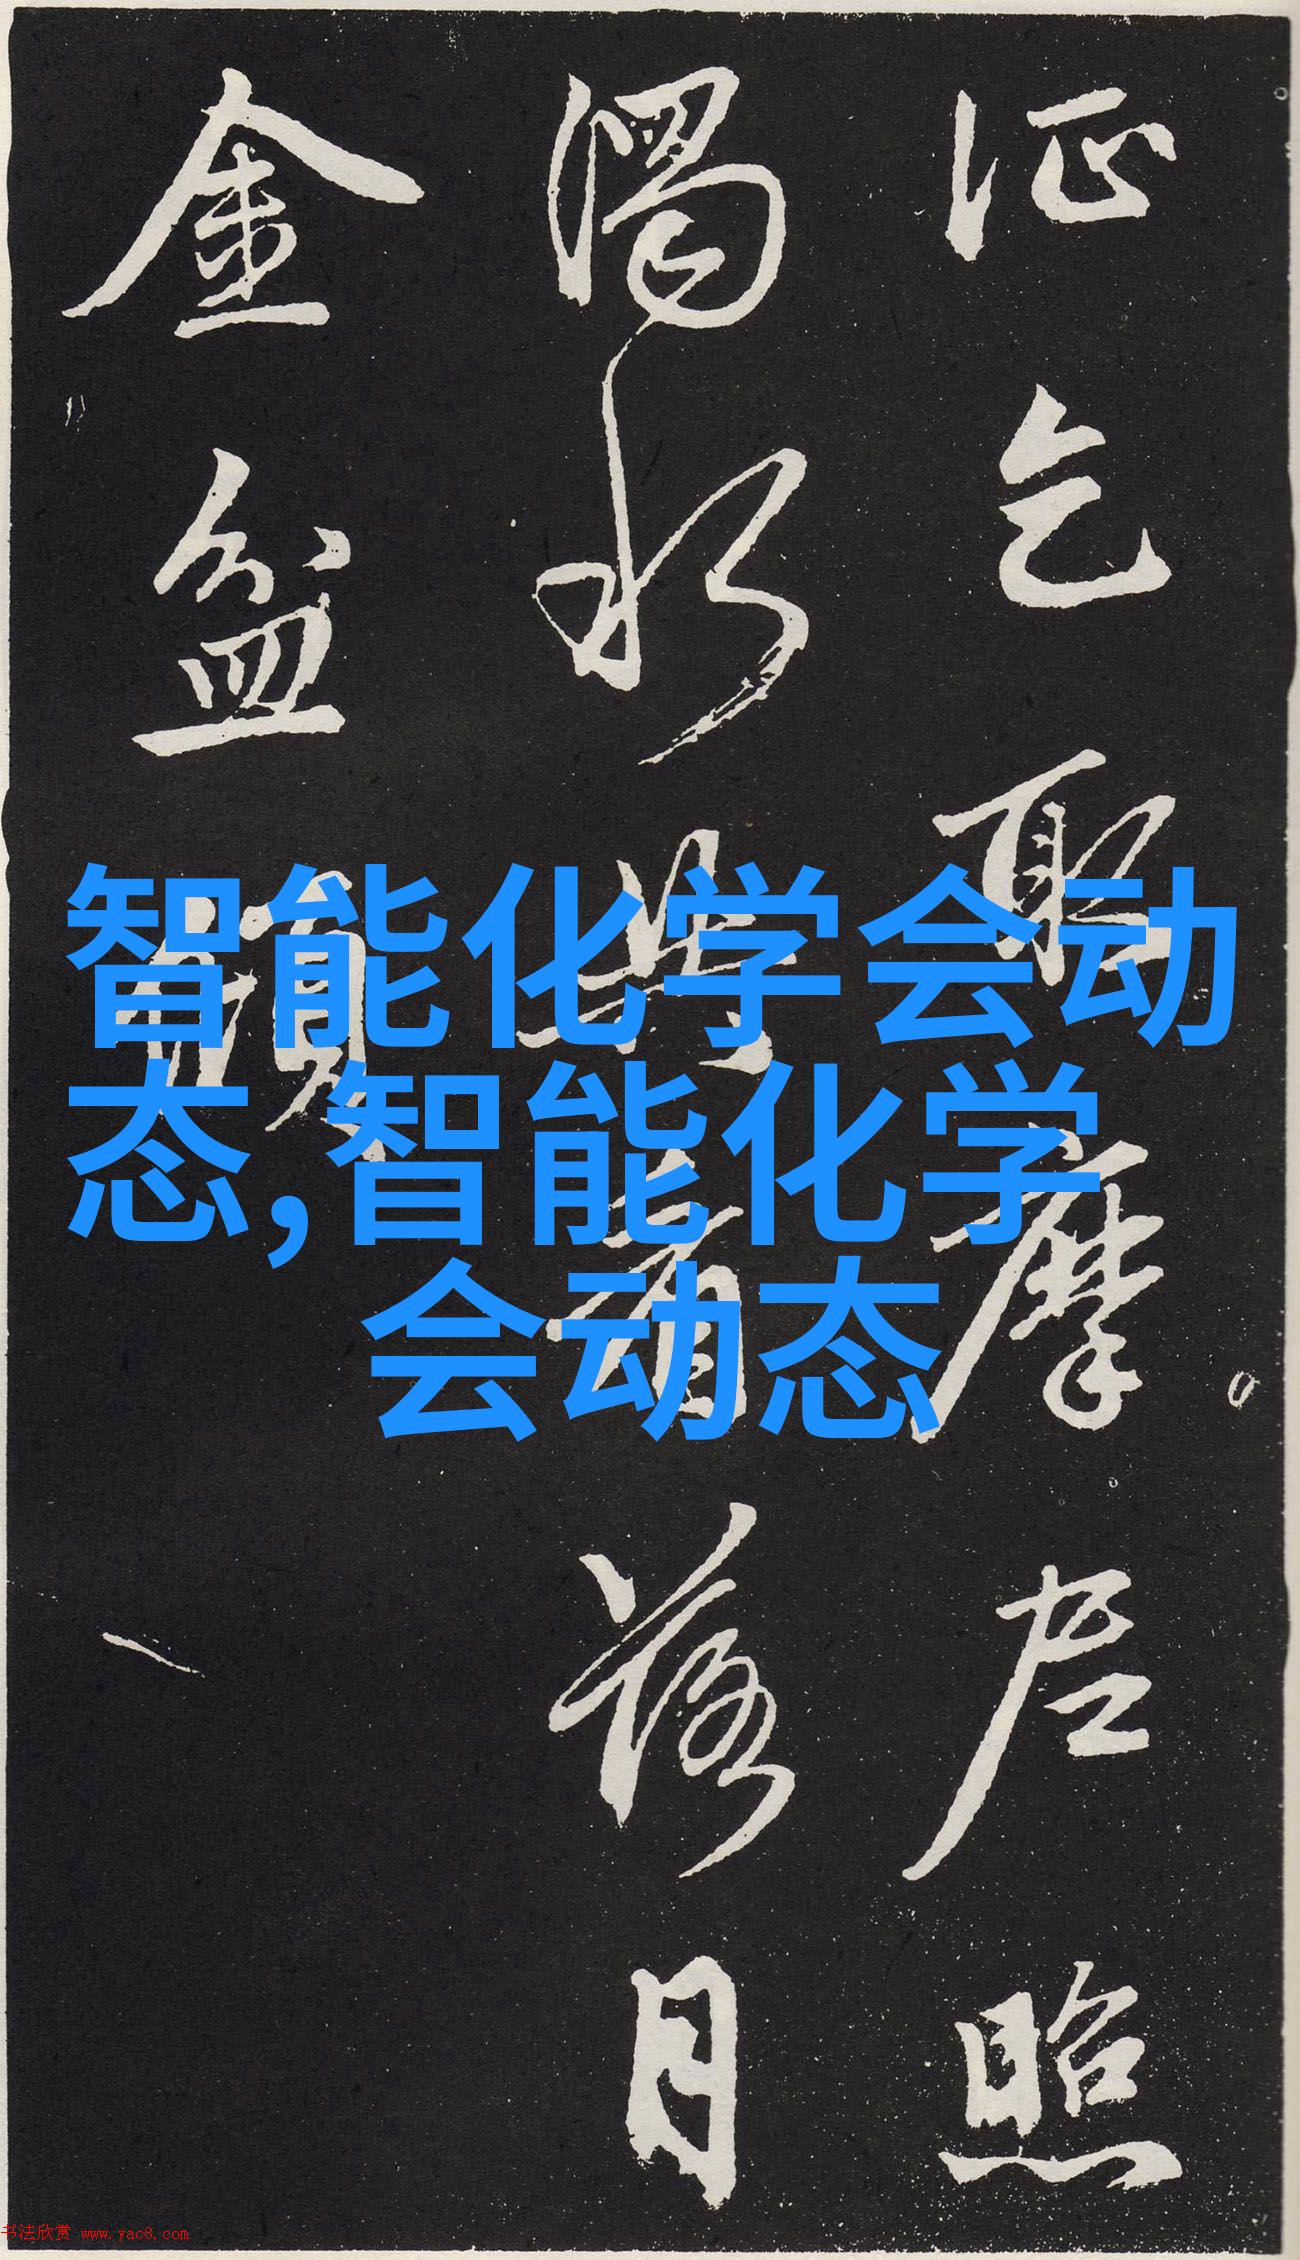 乞取摩尼照
濁水共看落月
金盆傾
智能化学会动
态,智能化学
会动态
书法欣赏 www.yac8.com